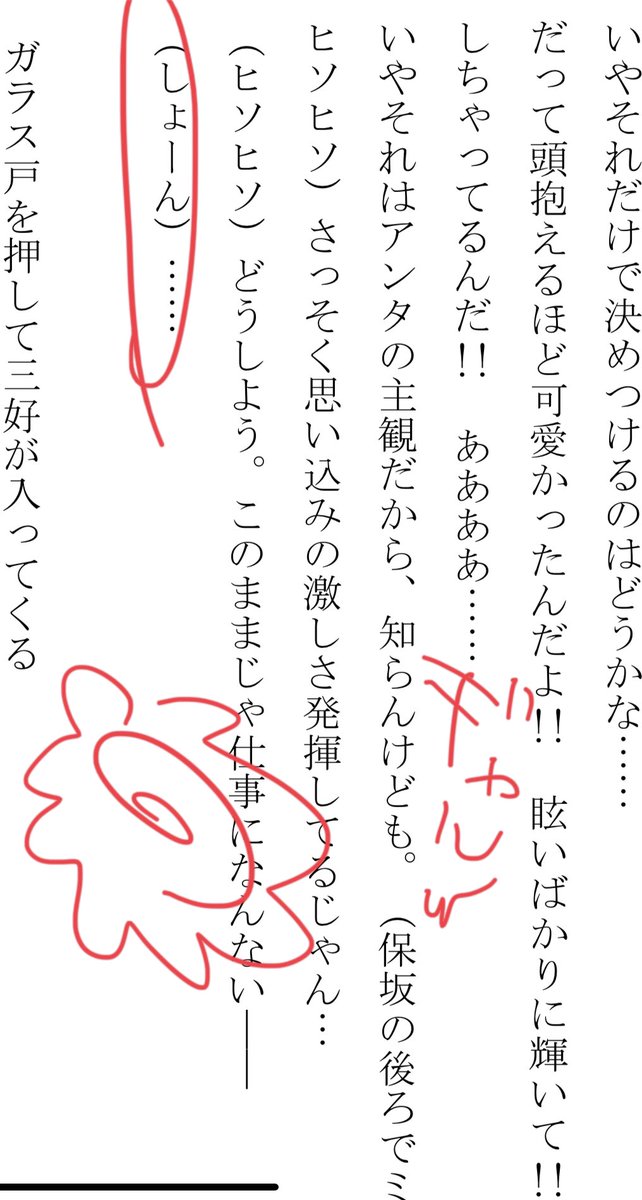 いやそれだけで決めつけるのはどうかな……
だって頭抱えるほど可愛かったんだよ!!　眩いばかりに輝いて!!
しちゃってるんだ!!　ああああ……
いやそれはアンタの主観だから、知らんけども。（保坂の後ろでミ
ヒソヒソ）さっそく思い込みの激しさ発揮してるじゃん…
（ヒソヒソ）どうしよう。このままじゃ仕事になんない――
（しょーん）……
ガラス戸を押して三好が入ってくる